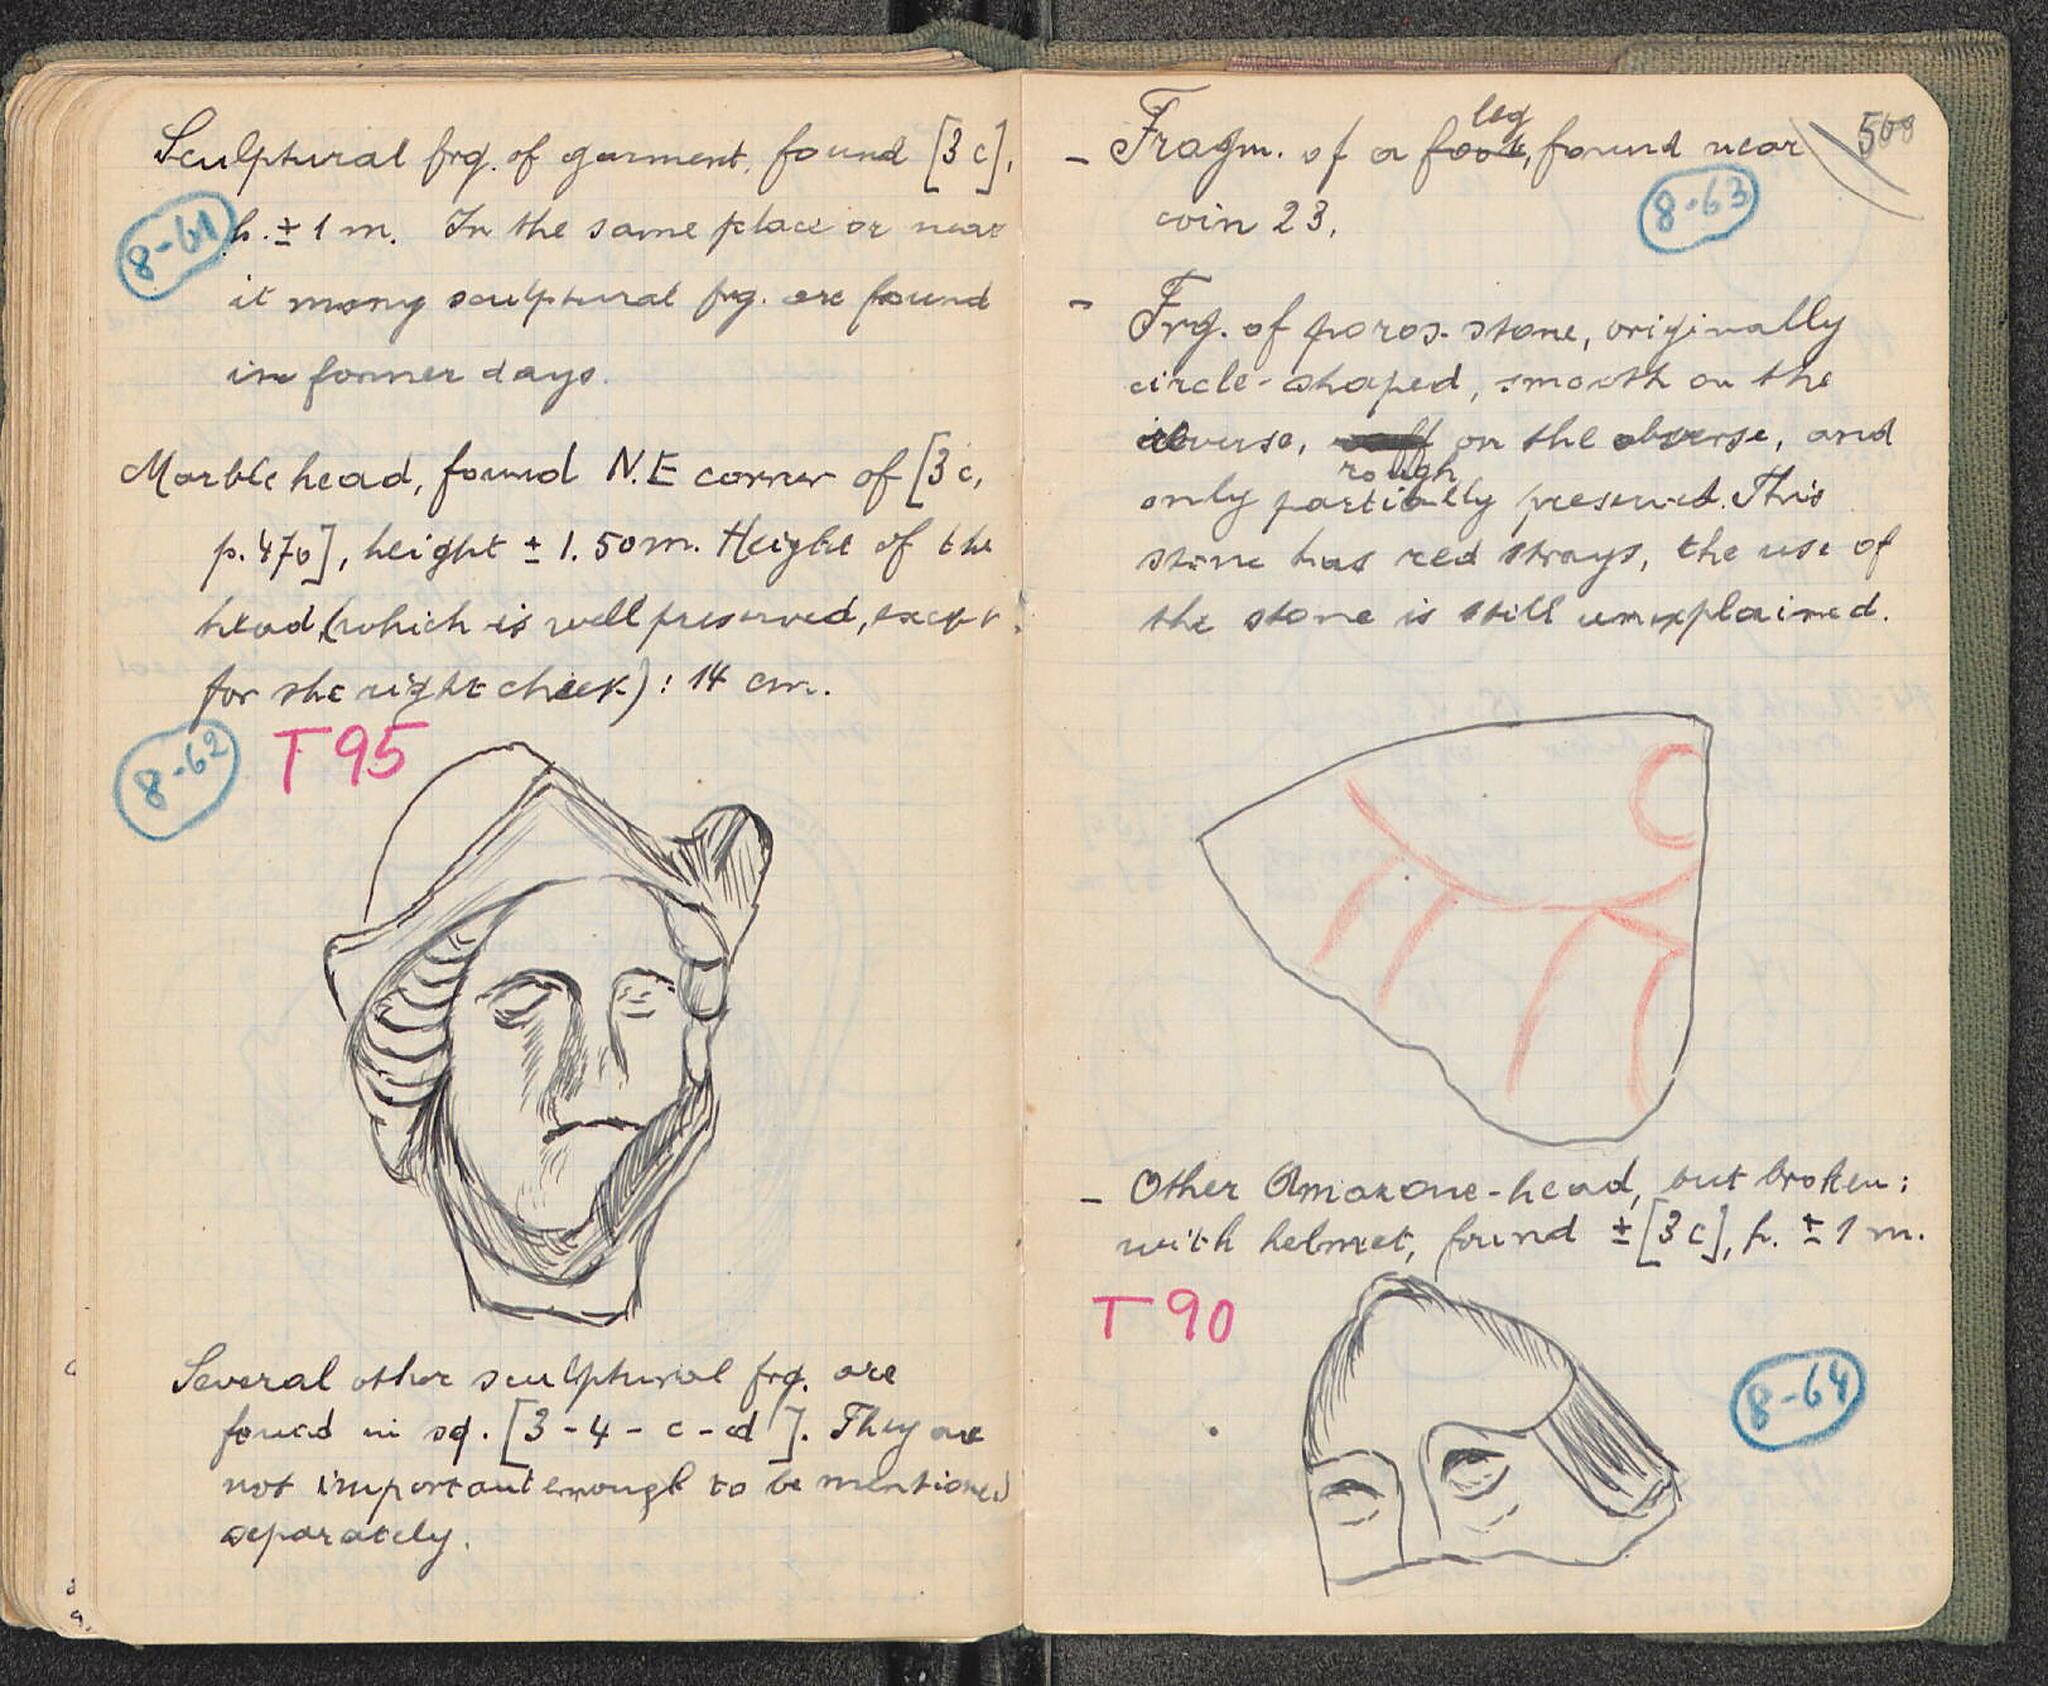 Sculptural frg. of garment, found [3c],
8-61
h. ± 1 m. In the same place or near
it many sculptural frg. are found
in former days.
Marble head, found N.E corner of [3c,
p. 470], height ± 1.50 m. Height of the
head, (which is well preserved, except
for the right cheek) : 14 cm.
8-62
T 95
Several other sculptural frg. are
found in sq. [3-4-c-d]. They are
not important enough to be mentioned
separately.
500
leg
- Fragm. of a foot, found near
coin 23.
8-63
- Frg. of poros-stone, originally
circle-shaped, smooth on the
on the obverse, and
rough
only partially preserved. This
stone has red strays, the use of
the stone is still unexplained.
- Other Amazone-head, but broken:
with helmet, found ± [3c], h. ± 1 m.
T 90
8-64